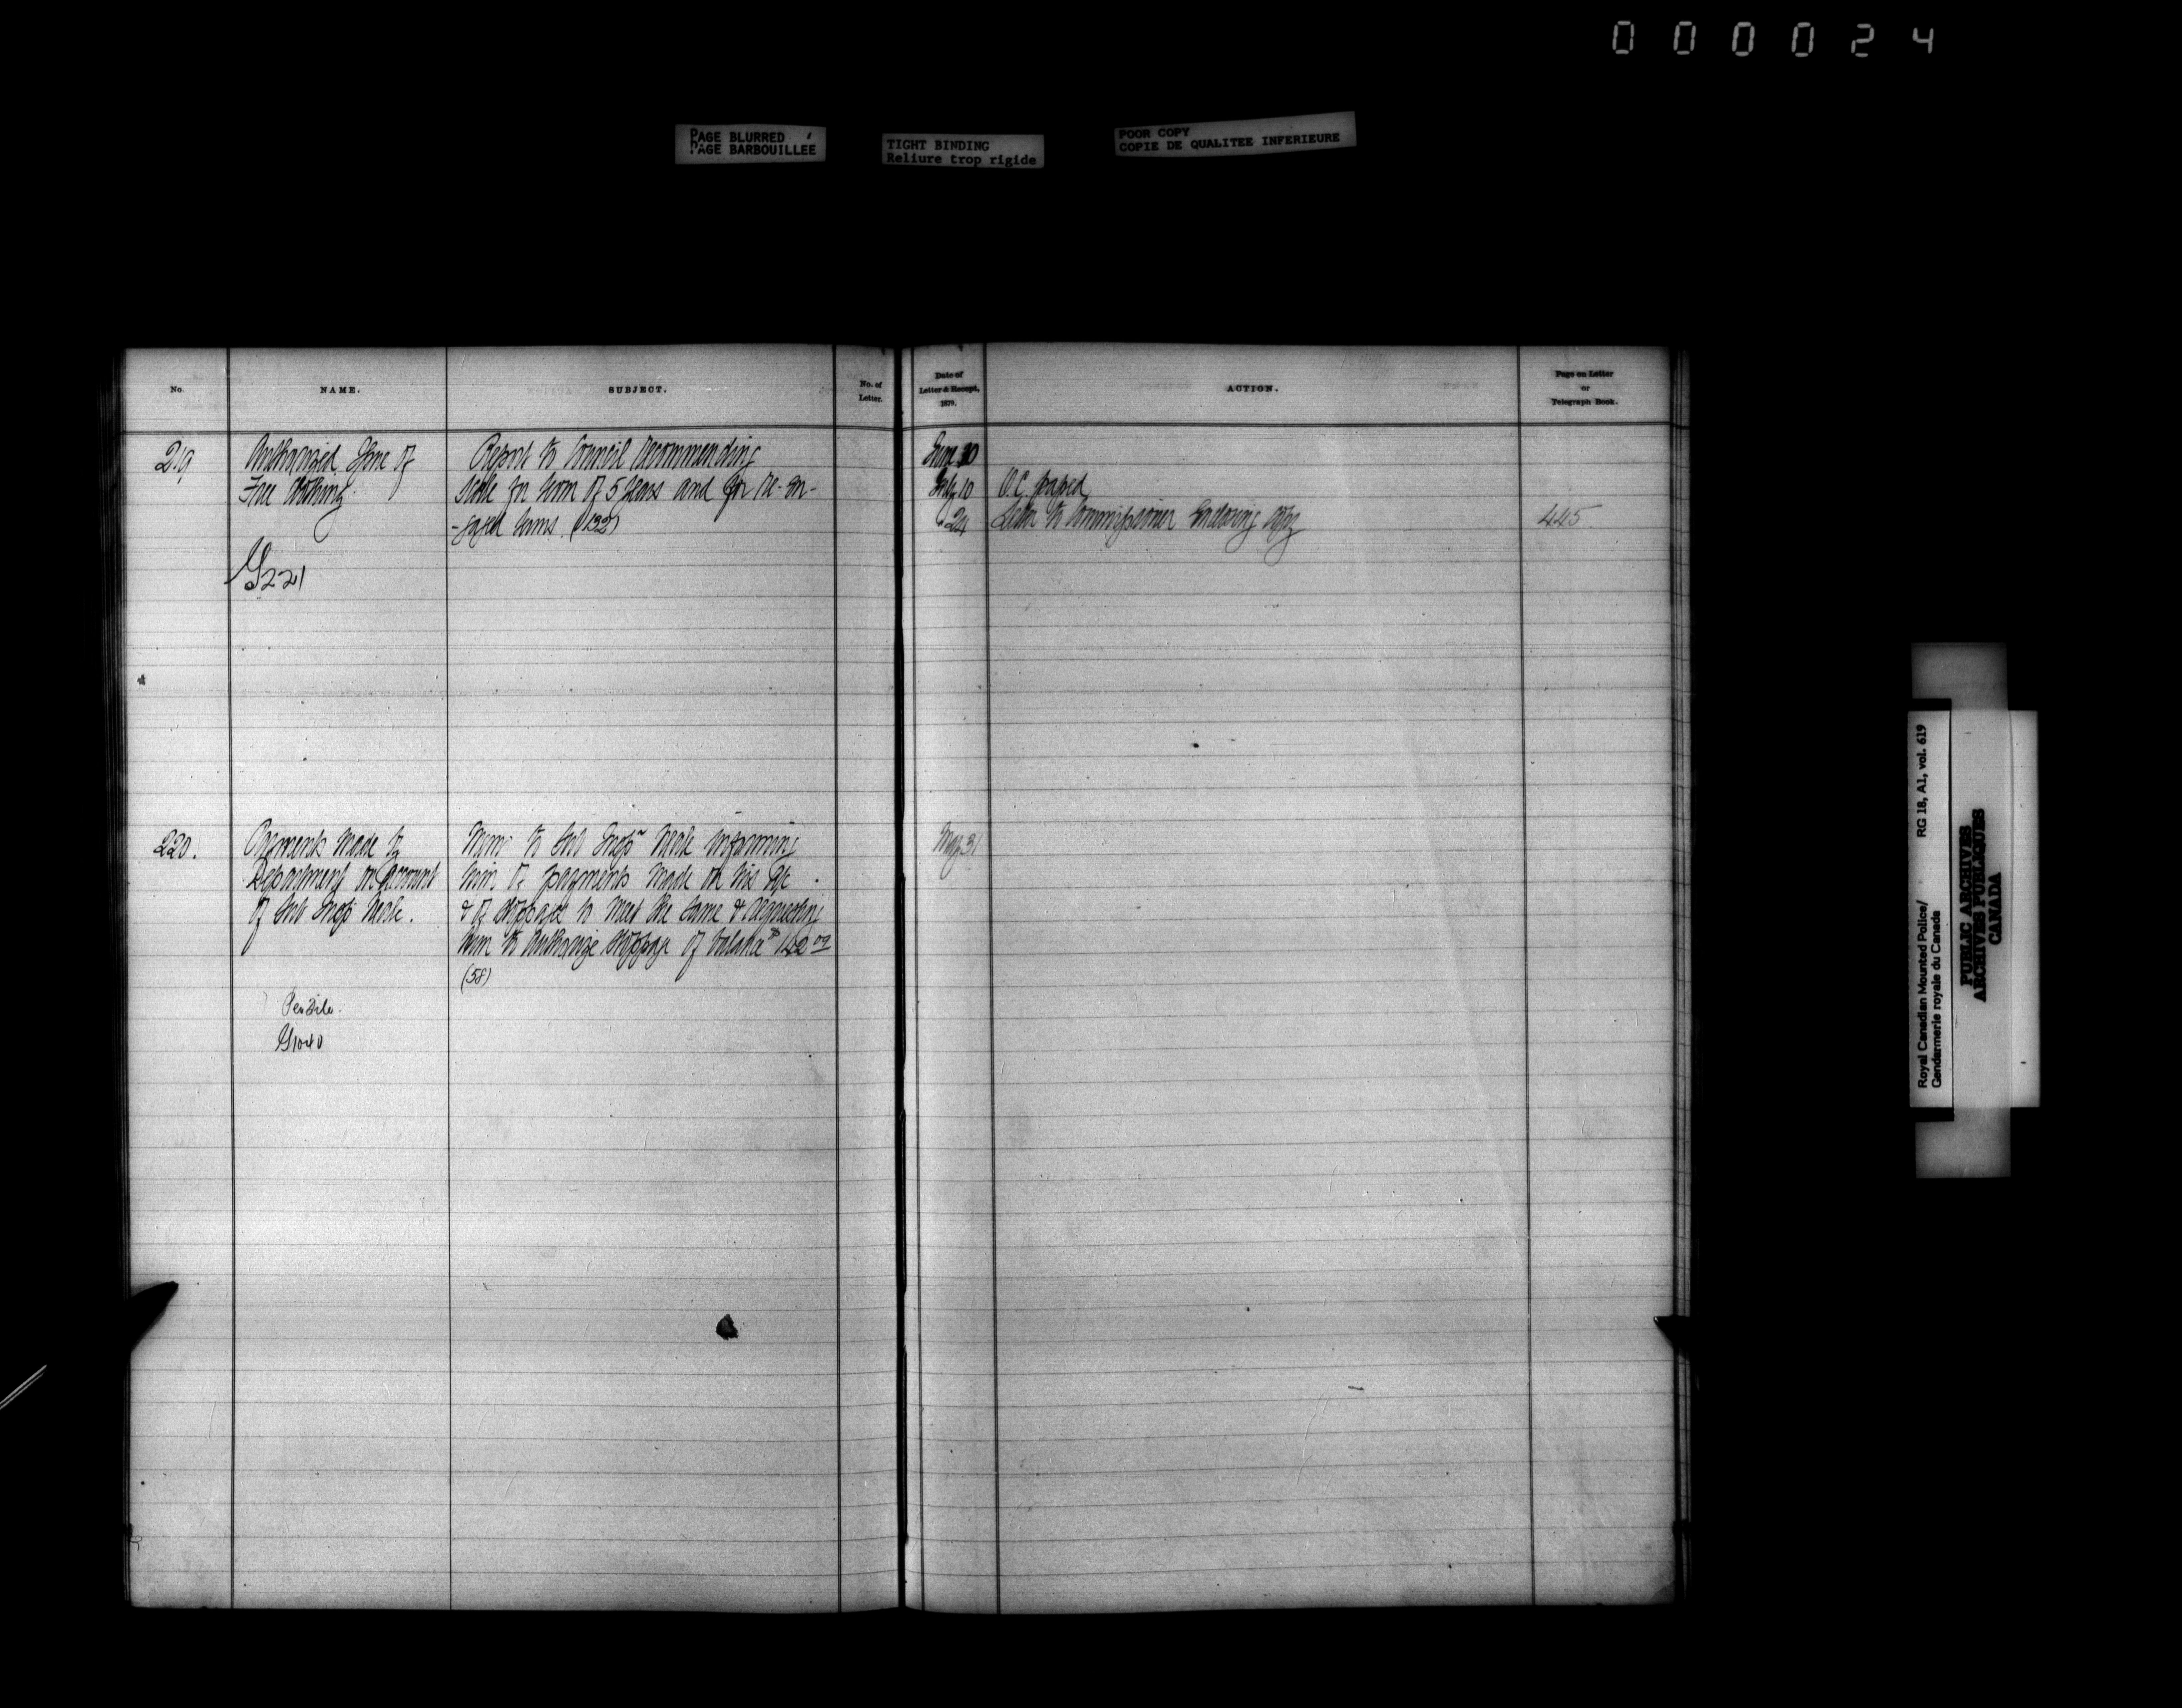 000024
PAGE BLURRED
PAGE BARBOUILLÉE
TIGHT BINDING
Reliure trop rigide
POOR COPY
COPIE DE QUALITEE INFERIEURE
No.
NAME.
SUBJECT.
No. of
Letter.
Date of
Letter & Receipt,
1879.
ACTION.
Page on Letter
or
Telegraph Book.
219
Authorized Issue of
Free Clothing.
G221
Report to Council recommending
scale for term of 5 years and for re-en-
-gaged terms. (132)
June 30
July 10
" 24
O.C. passed
Letter to Commissioner enclosing copy
445.
220.
Payments made by
Department on account
of Sub Inspr Neale.
Pensile.
G1040
Memo to Sub Inspr Neale informing
him of payments made on his a/c
& of stoppage to meet the same & requesting
him to authorize stoppage of balance $
(58)
May 31
Royal Canadian Mounted Police/ RG 18, A1, vol. 619
Gendarmerie royale du Canada
PUBLIC ARCHIVES
ARCHIVES PUBLIQUES
CANADA